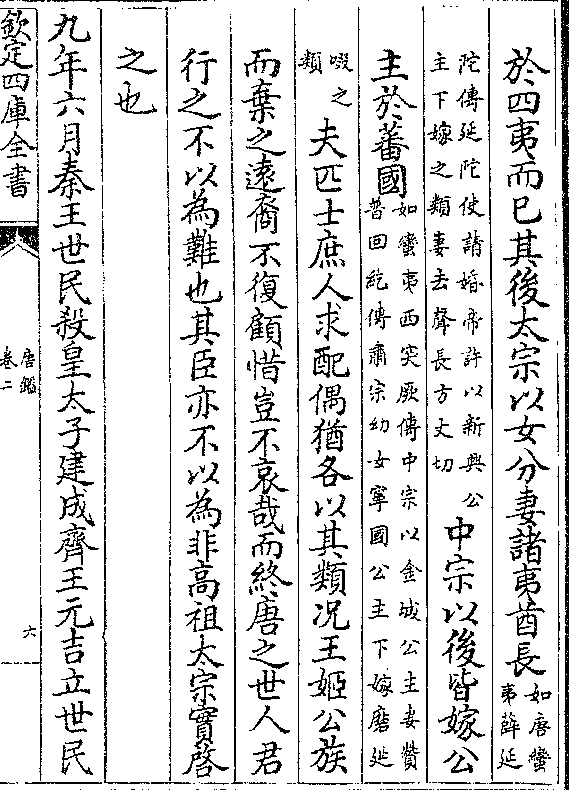 於四夷而已其後太宗以女分妻諸夷酋長如唐蠻夷薛延
陀傳延陀使請婚帝許以新興公主下嫁之類妻去聲長方丈切中宗以後皆嫁公
主於蕃國如蠻夷西突厥傳中宗以金城公主妻贊普回紇傳肅宗幼女寧國公主下嫁磨延
啜之類夫匹士庶人求配偶猶各以其類况王姬公族
而棄之逺裔不復顧惜豈不哀哉而終唐之世人君
行之不以為難也其臣亦不以為非高祖太宗實啓
之也
九年六月秦王世民殺皇太子建成齊王元吉立世民
欽定四庫全書
唐鑑
卷二
六